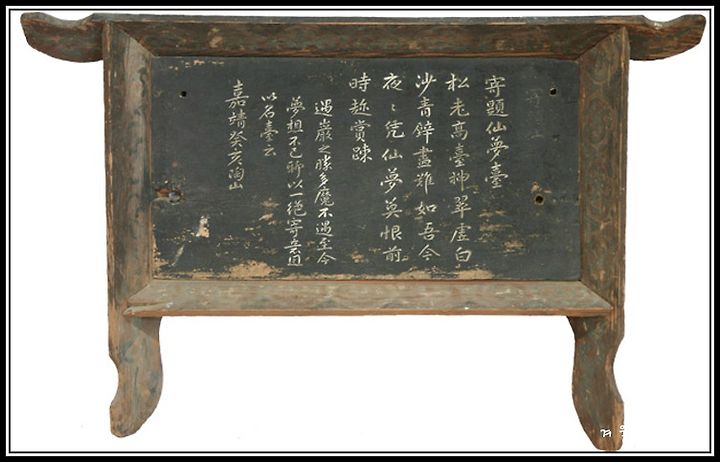 寄題仙夢臺
松老高臺揷翠虛白
沙青壁畫難如吾今
夜〻凭仙夢莫恨前
時趂賞疎
遇巖之勝多魔不遇至今
夢想不已聊以一絶寄意因
以名臺云
嘉靖癸亥陶山